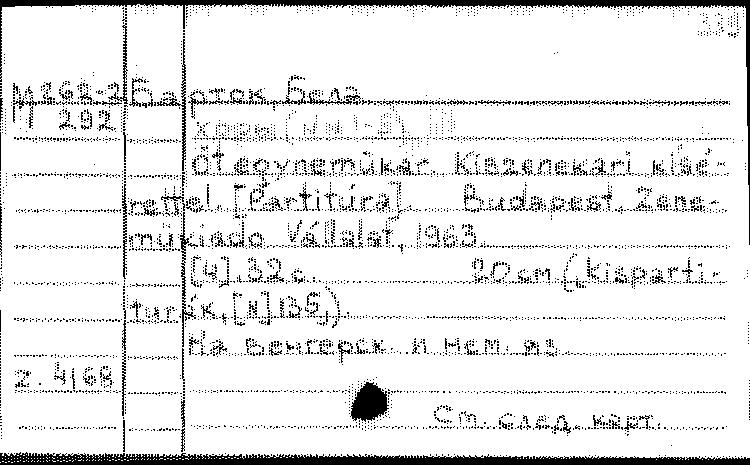 339
М 262-2 Барток, Бела
292
хоры (NN 1-5)
Öt egynemükar. Kiszenekari kisé-
rettel. [Partitúra]. Budapest, Zene-
mükiado Vállalat, 1963.
[4], 32 с. 20 см. (Kisparti-
turák, [N] 135,).
На венгерск. и нем. яз.
z. 4168
См. след. карт.